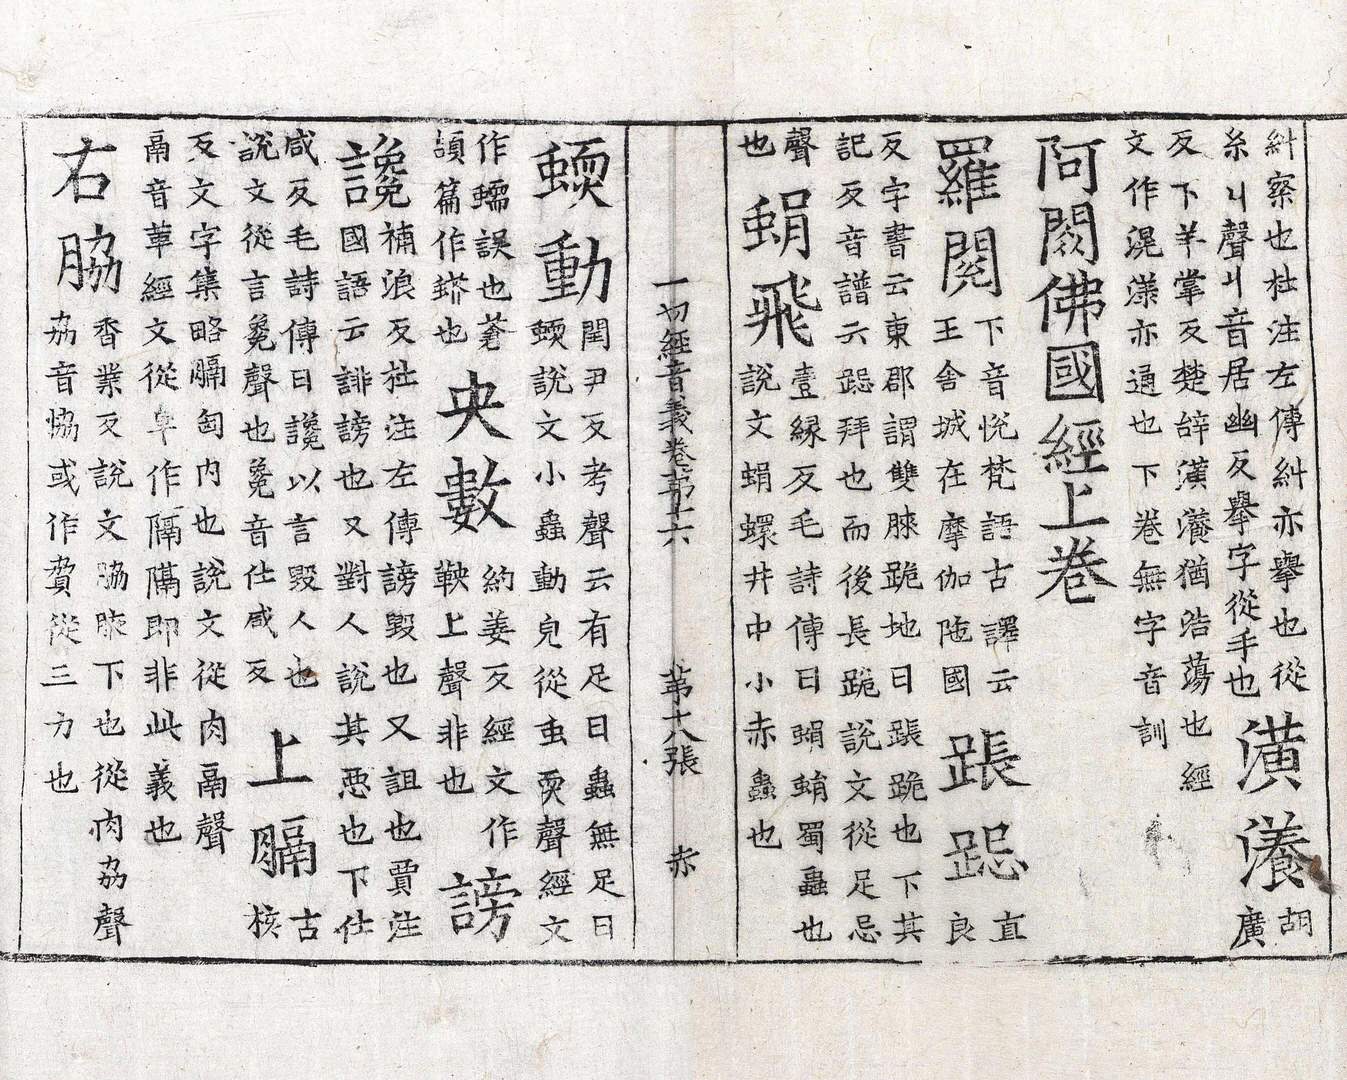 糾察也杜注左傳糾亦擧也從
糸丩聲丩音居幽反擧字從手也
潢瀁
胡
廣
反下羊掌反楚辞潢瀁猶浩蕩也經
文作滉漾亦通也下卷無字音訓
阿閦佛國經上卷
羅閱
下音悅梵語古譯云
王舍城在摩伽陁國
䠆跽
直
良
反字書云東郡謂雙膝跪地曰䠆跪也下其
記反音譜云跽拜也而後長跪說文從足忌
聲
也
蜎飛
壹緣反毛詩傳曰蜎蛸蜀蟲也
說文蜎蠉井中小赤蟲也
一切經音義卷第十六 第十八張 赤
蝡動
閏尹反考聲云有足曰蟲無足曰
蝡說文小蟲動皃從虫耎聲經文
作蠕誤也蒼
頡篇作蝚也
央數
約姜反經文作
鞅上聲非也
謗
補浪反杜注左傳謗毀也又詛也賈注
國語云誹謗也又對人說其惡也下仕
讒
咸反毛詩傳曰讒以言毀人也
說文從言毚聲也毚音仕咸反
上膈
古
核
反文字集略膈匈內也說文從肉鬲聲
鬲音革經文從阜作隔隔即非此義也
右脇
香業反說文脇膝下也從肉劦聲
劦音恊或作賫從三力也